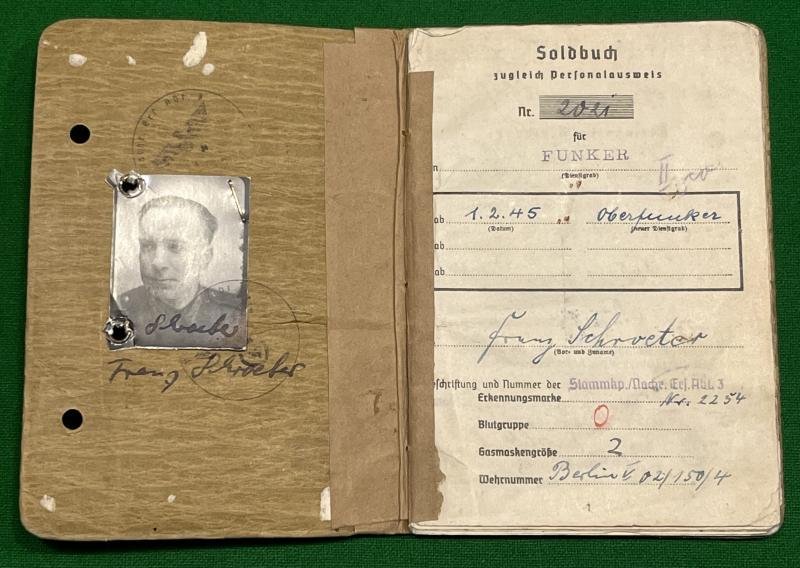 Schroeter
Franz Schroeter
Soldbuch
zugleich Personalausweis
Nr. 2021
für
FUNKER
(Dienstgrad)
ab 1.2.45 Oberfunker
(Datum) (neuer Dienstgrad)
ab
ab
Franz Schroeter
(Vor- und Zuname)
eschriftung und Nummer der Stammkp./Nachr. Ers. Abt. 3
Erkennungsmarke Nr. 2254
Blutgruppe O
Gasmaskengröße 2
Wehrnummer Berlin V 02/150/4
1